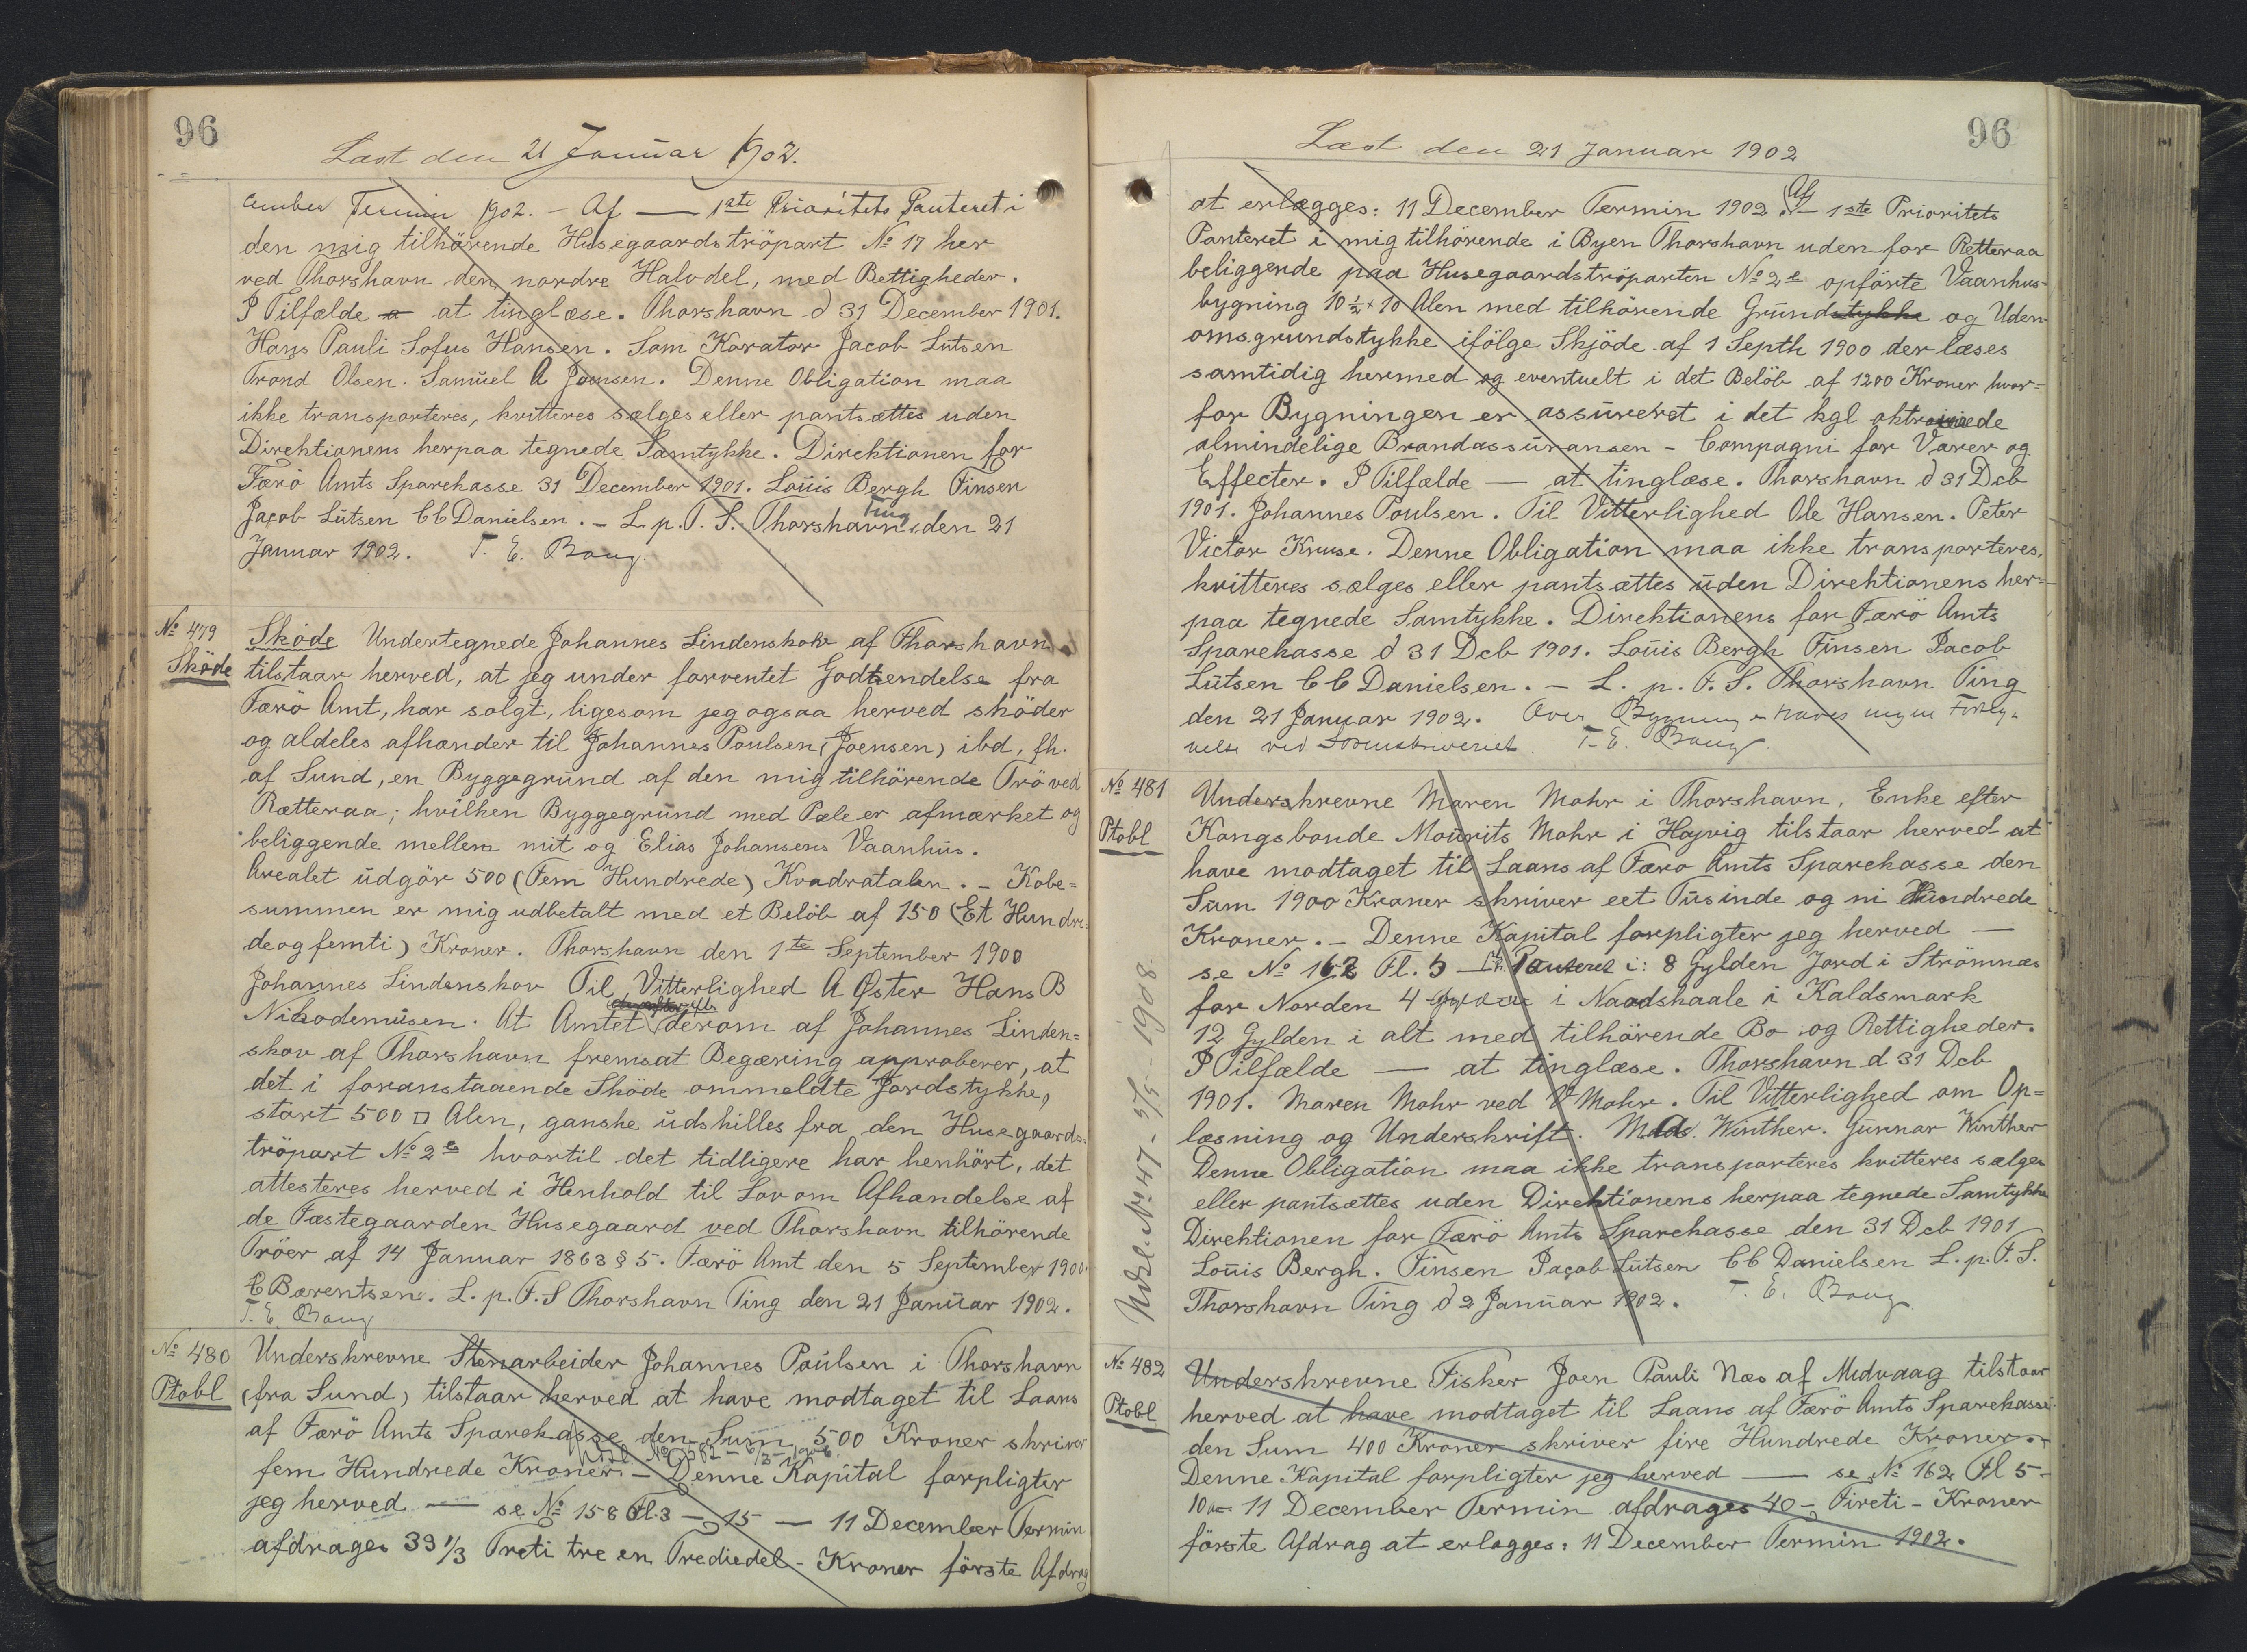 96
Læst den 21 Januar 1902.
cember Termin 1902. - Af — 1ste Prioritets Panteret i
den mig tilhörende Husegaards tröpart No 17 her
ved Thorshavn den nordre Halvdel, med Rettigheder.
I Tilfælde at tinglæse. Thorshavn d 31 December 1901.
Hans Pauli Sofus Hansen. Som Korator Jacob Lutsen
Trond Olsen. Samuel A Joensen. Denne Obligation maa
ikke transporteres, kvitteres sælges eller pantsættes uden
Direktionens herpaa tegnede Samtykke. Direktionen for
Færö Amts Sparekasse 31 December 1901. Louis Bergh Finsen
Jacob Lutsen CC Danielsen. - L. p. F. S. Thorshavn Ting den 21
Januar 1902. T. E. Bang.
No 479
Sköde
Sköde Undertegnede Johannes Lindenskov af Thorshavn
tilstaar herved, at jeg under forventet Godkendelse fra
Færö Amt, har solgt, ligesom jeg ogsaa herved sköder
og aldeles afhænder til Johannes Poulsen (Joensen) ibd, fh.
af Sund, en Byggegrund af den mig tilhörende Trö ved
Rætteraa; hvilken Byggegrund med Pæle er afmærket og
beliggende mellem mit og Elias Johansens Vaanhus.
Arealet udgör 500 (Fem Hundrede) Kvadratalen. - Kobe=
summen er mig udbetalt med et Belöb af 150 (Et Hundre=
de og femti) Kroner. Thorshavn den 1te September 1900
Johannes Lindenskov Til Vitterlighed A Øster Hans B
Nikodemusen. At Amtet derom af Johannes Linden=
skov af Thorshavn fremsat Begæring approberer, at
det i foranstaaende Sköde ommeldte Jordstykke,
stort 500 □ Alen, ganske udskilles fra den Husegaards=
tröpart No 2e hvortil det tidligere har henhört, det
attesteres herved i Henhold til Lov om Afhændelse af
de Fæstegaarden Husegaard ved Thorshavn tilhörende
Tröer af 14 Januar 1863 § 5. Færö Amt den 5 September 1900.
C Bærentsen. L. p. F. S Thorshavn Ting den 21 Januar 1902.
T. E. Bang
No 480
Ptobl
Underskrevne Stenarbeider Johannes Poulsen i Thorshavn
(fra Sund) tilstaar herved at have modtaget til Laans
af Færö Amts Sparekasse den Sum 500 Kroner skriver
fem Hundrede Kroner. - Denne Kapital forpligter
jeg herved — se No 158 Fl. 3 - 15 — 11 December Termin
afdrages 33 1/3 Treti tre en Trediedel - Kroner förste Afdrag
96
Læst den 21 Januar 1902
at erlægges: 11 December Termin 1902. Af - 1ste Prioritets
Panteret i mig tilhörende i Byen Thorshavn uden for Retteraa
beliggende paa Husegaardströparten No 2e opförte Vaanhus-
bygning 10 1/2 x 10 Alen med tilhörende Grundstykke og Uden-
omsgrundstykke ifölge Skjöde af 1 Septb 1900 der læses
samtidig hermed og eventuelt i det Belöb af 1200 Kroner hvor=
for Bygningen er assureret i det kgl oktroierede
almindelige Brandassuransen - Compagni for Varer og
Effecter. I Tilfælde — at tinglæse. Thorshavn d 31 Dcb
1901. Johannes Poulsen. Til Vitterlighed Ole Hansen. Peter
Victor Kruse. Denne Obligation maa ikke transporteres,
kvitteres sælges eller pantsættes uden Direktionens her=
paa tegnede Samtykke. Direktionens for Færö Amts
Sparekasse d 31 Dcb 1901. Louis Bergh Finsen Jacob
Lutsen CC Danielsen. - L. p. F. S. Thorshavn Ting
den 21 Januar 1902. Over Bygningen haves ingen
ved T. E. Bang.
No 481
Ptobl
Underskrevne Maren Mohr i Thorshavn, Enke efter
Kongsbonde Mourits Mohr i Hojvig tilstaar herved at
have modtaget til Laans af Færo Amts Sparekasse den
Sum 1900 Kroner skriver eet Tusinde og ni Hundrede
Kroner. - Denne Kapital forpligter jeg herved —
se No 162 Fl. 5 - Panteret i: 8 Gylden Jord i Strömnæs
for Norden 4 Gylden i Naadskaale i Kaldsmark
12 Gylden i alt med tilhörende Bo og Rettigheder.
I Tilfælde — at tinglæse. Thorshavn d 31 Dcb
1901. Maren Mohr ved V Mohr. Til Vitterlighed om Op=
læsning og Underskrift. Mads Winther. Gunnar Winther
Denne Obligation maa ikke transporteres kvitteres sælges
eller pantsættes uden Direktionens herpaa tegnede Samtykke
Direktionen for Færö Amts Sparekasse den 31 Dcb 1901
Louis Bergh. Finsen Jacob Lutsen CC Danielsen L. p. F. S.
Thorshavn Ting d 2 Januar 1902. T. E. Bang.
Udsl. No 47 - 5/5 - 1908.
No 482
Ptobl
Underskrevne Fisker Joen Pauli Næs af Midvaag tilstaar
herved at have modtaget til Laans af Færö Amts Sparekasse
den Sum 400 Kroner skriver fire Hundrede Kroner. -
Denne Kapital forpligter jeg herved — se No 162 Fl 5 -
10 11 December Termin afdrages 40 - Fireti - Kroner
förste Afdrag at erlægges: 11 December Termin 1902.